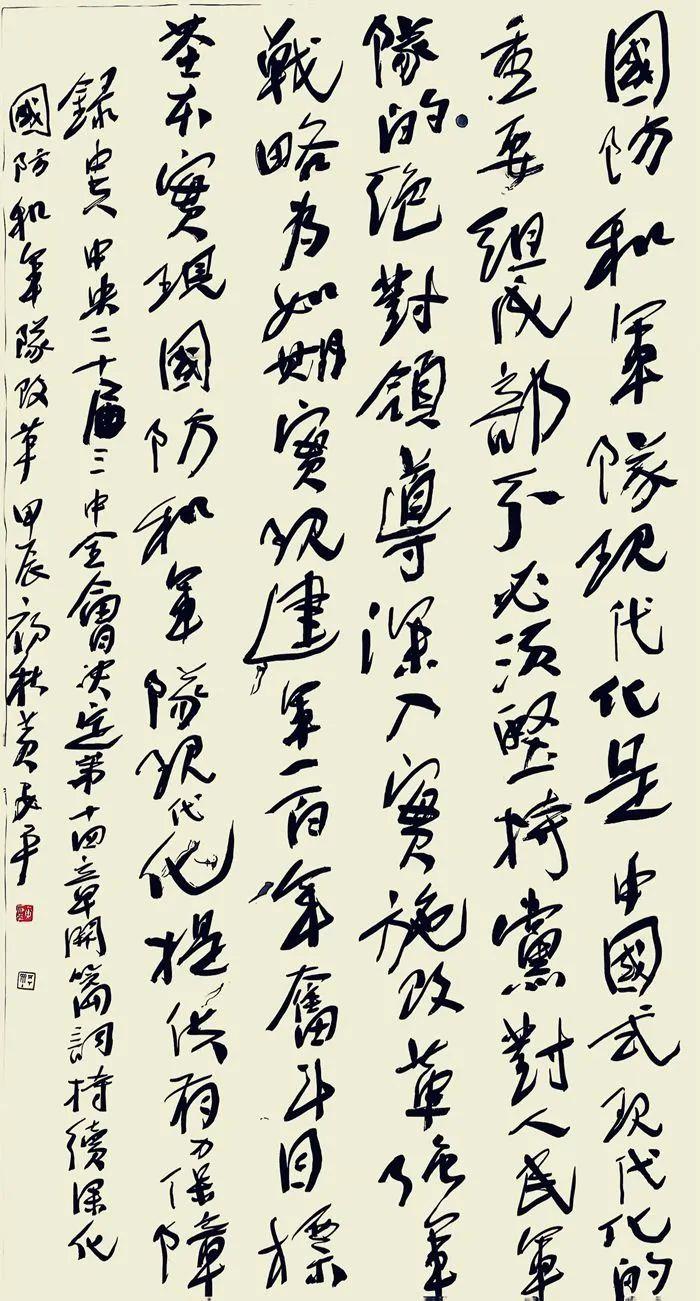 國防和軍隊现代化是中國式现代化的
重要组成部分必须坚持黨對人民軍
隊的绝對領導深入實施改革强軍
戰略为如期實现建軍一百年奮斗目標
基本實現國防和軍隊现代化提供有力保障
錄中共中央二十届三中全會决定第十四章開篇詞持續深化
國防和軍隊改革甲辰初秋黄